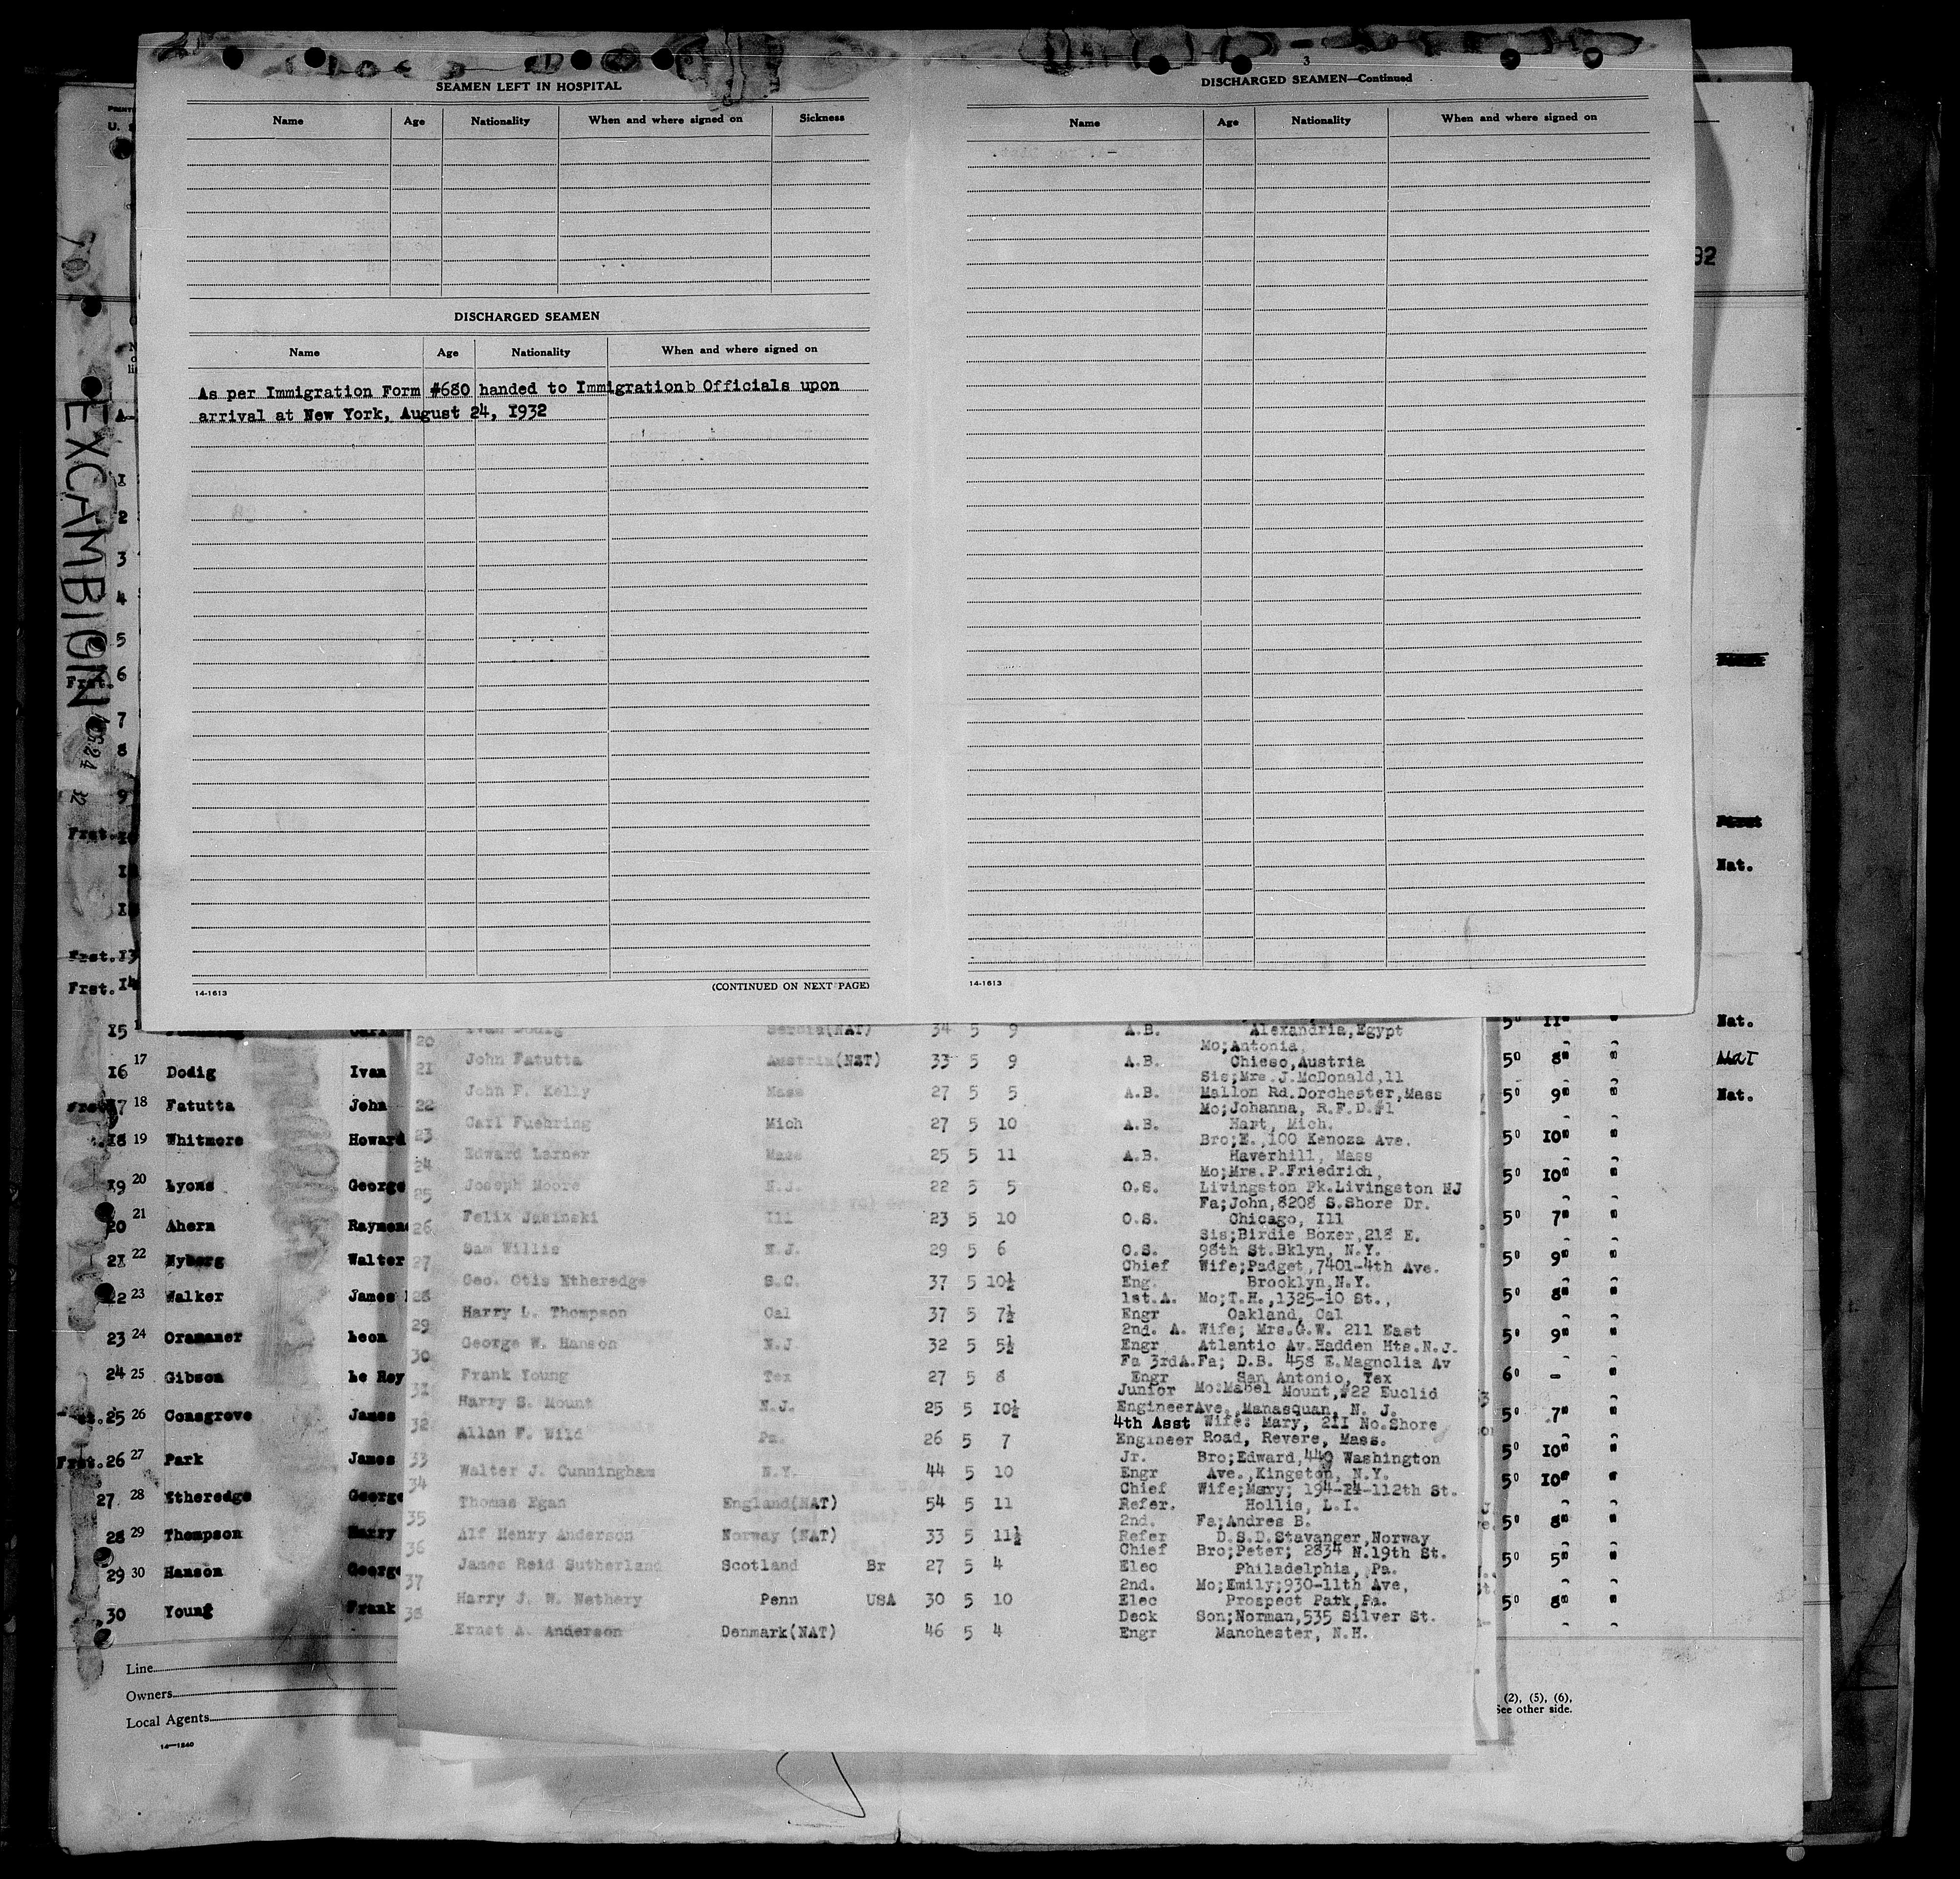 SEAMEN LEFT IN HOSPITAL
Name Age Nationality When and where signed on Sickness
DISCHARGED SEAMEN
Name Age Nationality When and where signed on
As per Immigration Form #680 handed to Immigrationb Officials upon
arrival at New York, August 24, 1932
14-1613 (CONTINUED ON NEXT PAGE)
3
DISCHARGED SEAMEN—Continued
Name Age Nationality When and where signed on
14-1613
92
EXCAMBION
1
2
3
4
5
Frst. 6
7
8
9
Frst.
Frst.13
Frst.14
15
16 17 Dodig Ivan
17 18 Fatutta John
18 19 Whitmore Howard
19 20 Lyons George
20 21 Ahern Raymond
21 22 Nyberg Walter
22 23 Walker James
23 24 Oramaner Leon
24 25 Gibson Le Roy
25 26 Cosgrove James
Frst.26 27 Park James
27 28 Etheredge George
28 29 Thompson Harry
29 30 Hanson George
30 Young Frank
Line
Owners
Local Agents
14—1240
Ivan Dodig Serbia(NAT) 34 5 9 A.B. Alexandria,Egypt
20 Mo;Antonia,
John Fatutta Austria(NAT) 33 5 9 A.B. Chisso,Austria
21 Sis;Mrs.J.McDonald,11
John F. Kelly Mass 27 5 5 A.B. Mallon Rd.Dorchester,Mass
22 Mo;Johanna, R.F.D.#1
Carl Fuehring Mich 27 5 10 A.B. Hart, Mich.
23 Bro;E.,100 Kenoza Ave.
Edward Larner Mass 25 5 11 A.B. Haverhill, Mass
24 Mo;Mrs.P.Friedrich,
Joseph Moore N.J. 22 5 5 O.S. Livingston Pk.Livingston NJ
25 Fa;John,8208 S.Shore Dr.
Felix Jasinski Ill 23 5 10 O.S. Chicago, Ill
26 Sis;Birdie Boxer,218 E.
Sam Willis N.J. 29 5 6 O.S. 98th St.Bklyn, N.Y.
27 Chief Wife;Padget,7401-4th Ave.
Geo. Otis Etheredge S.C. 37 5 10½ Eng. Brooklyn,N.Y.
28 1st.A. Mo;T.H.,1325-10 St.,
Harry L. Thompson Cal 37 5 7½ Engr Oakland, Cal
29 2nd. A. Wife; Mrs.G.W. 211 East
George W. Hanson N.J 32 5 5½ Engr Atlantic Av.Hadden Hts.N.J.
30 Fa 3rdA.Fa; D.B. 458 E.Magnolia Av
Frank Young Tex 27 5 8 Engr San Antonio, Tex
31 Junior Mo:Mabel Mount,#22 Euclid
Harry S. Mount N.J. 25 5 10½ EngineerAve.,Manasquan, N. J.
32 4th Asst Wife: Mary, 211 No.Shore
Allan F. Wild Pa. 26 5 7 Engineer Road, Revere, Mass.
33 Jr. Bro;Edward,449 Washington
Walter J. Cunningham N.Y. 44 5 10 Engr Ave.,Kingston, N.Y.
34 Chief Wife;Mary; 194-24-112th St.
Thomas Egan England(NAT) 54 5 11 Refer. Hollis, L.I.
35 2nd. Fa;Andres B.
Alf Henry Anderson Norway (NAT) 33 5 11½ Refer D.S.D.Stavanger,Norway
36 Chief Bro;Peter; 2834 N.19th St.
James Reid Sutherland Scotland Br 27 5 4 Elec Philadelphia, Pa.
37 2nd. Mo;Emily;930-11th Ave,
Harry J. W. Nethery Penn USA 30 5 10 Elec Prospect Park,Pa.
38 Deck Son;Norman,535 Silver St.
Ernst A. Anderson Denmark(NAT) 46 5 4 Engr Manchester, N.H.
Nat.
5' 11" " Nat.
5' 8" " Nat
5' 9" " Nat.
5' 10" "
5' 10" "
5' 7" "
5' 9" "
5' 8" "
5' 9" "
6' - "
5' 7" "
5' 10" "
5' 10" "
5' 8" "
5' 5" "
5' 8" "
(2), (5), (6),
See other side.